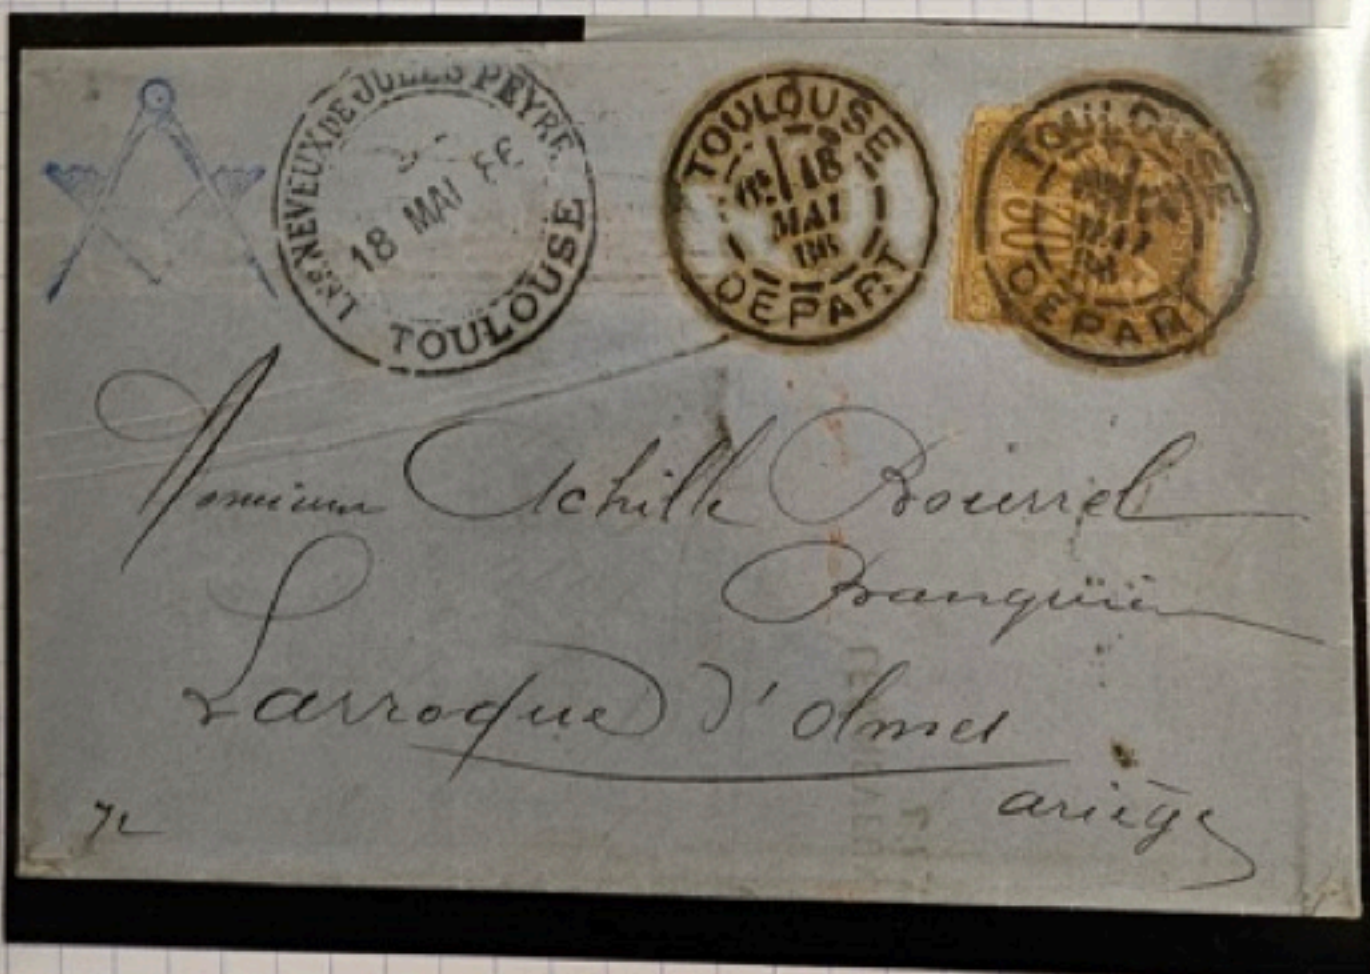 LES NEVEUX DE JULES PEYRE
18 MAI
TOULOUSE
TOULOUSE
18
MAI
DEPART
TOULOUSE
MAI
DEPART
Monsieur Achille Bourrel
Banquier
Larroque d'olmes
ariège